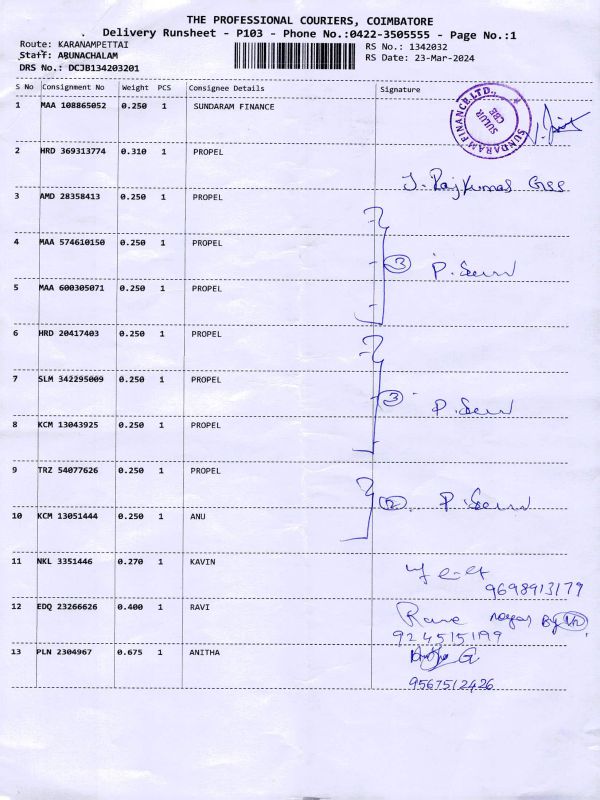 THE PROFESSIONAL COURIERS, COIMBATORE
Delivery Runsheet - P103 - Phone No.:0422-3505555 - Page No.:1
Route: KARANAMPETTAI
RS No.: 1342032
Staff: ARUNACHALAM
RS Date: 23-Mar-2024
DRS No.: DCJB134203201
S No Consignment No Weight PCS Consignee Details Signature
1 MAA 108865052 0.250 1 SUNDARAM FINANCE
SUNDARAM FINANCE LTD., SULUR CBE
2 HRD 369313774 0.310 1 PROPEL
J. Rajkumar
3 AMD 28358413 0.250 1 PROPEL
4 MAA 574610150 0.250 1 PROPEL
3 P.
5 MAA 600305071 0.250 1 PROPEL
6 HRD 20417403 0.250 1 PROPEL
7 SLM 342295009 0.250 1 PROPEL
3 P.
8 KCM 13043925 0.250 1 PROPEL
9 TRZ 54077626 0.250 1 PROPEL
P.
10 KCM 13051444 0.250 1 ANU
11 NKL 3351446 0.270 1 KAVIN
9698913179
12 EDQ 23266626 0.400 1 RAVI
By
9245151199
13 PLN 2304967 0.675 1 ANITHA
9567512426